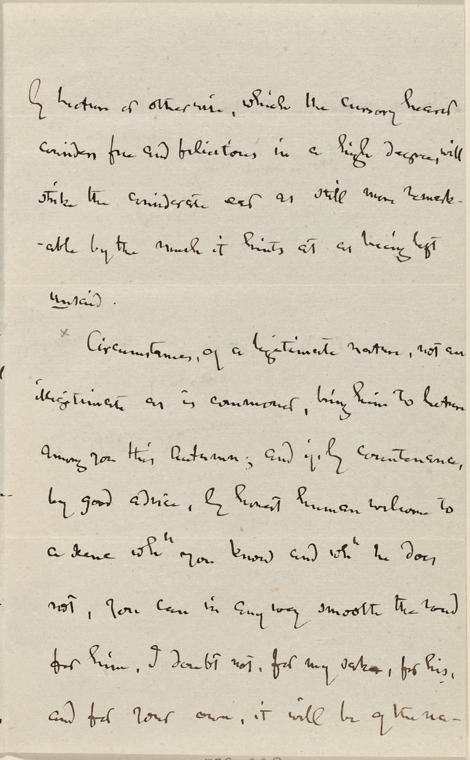 by lecture or otherwise, which the cursory hearer
considers fine and felicitous in a high degree, will
strike the considerate ear as still more remark-
-able by the much it hints at as being left
unsaid.
x
Circumstances, of a legitimate nature, not an
illegitimate as is commoner, bring him to lecture
among you this Autumn; and if, by countenance,
by good advice, by honest human welcome to
a scene whh you know and whh he does
not, you can in any way smooth the road
for him, I doubt not, for my sake, for his,
and for your own, it will be of the na-